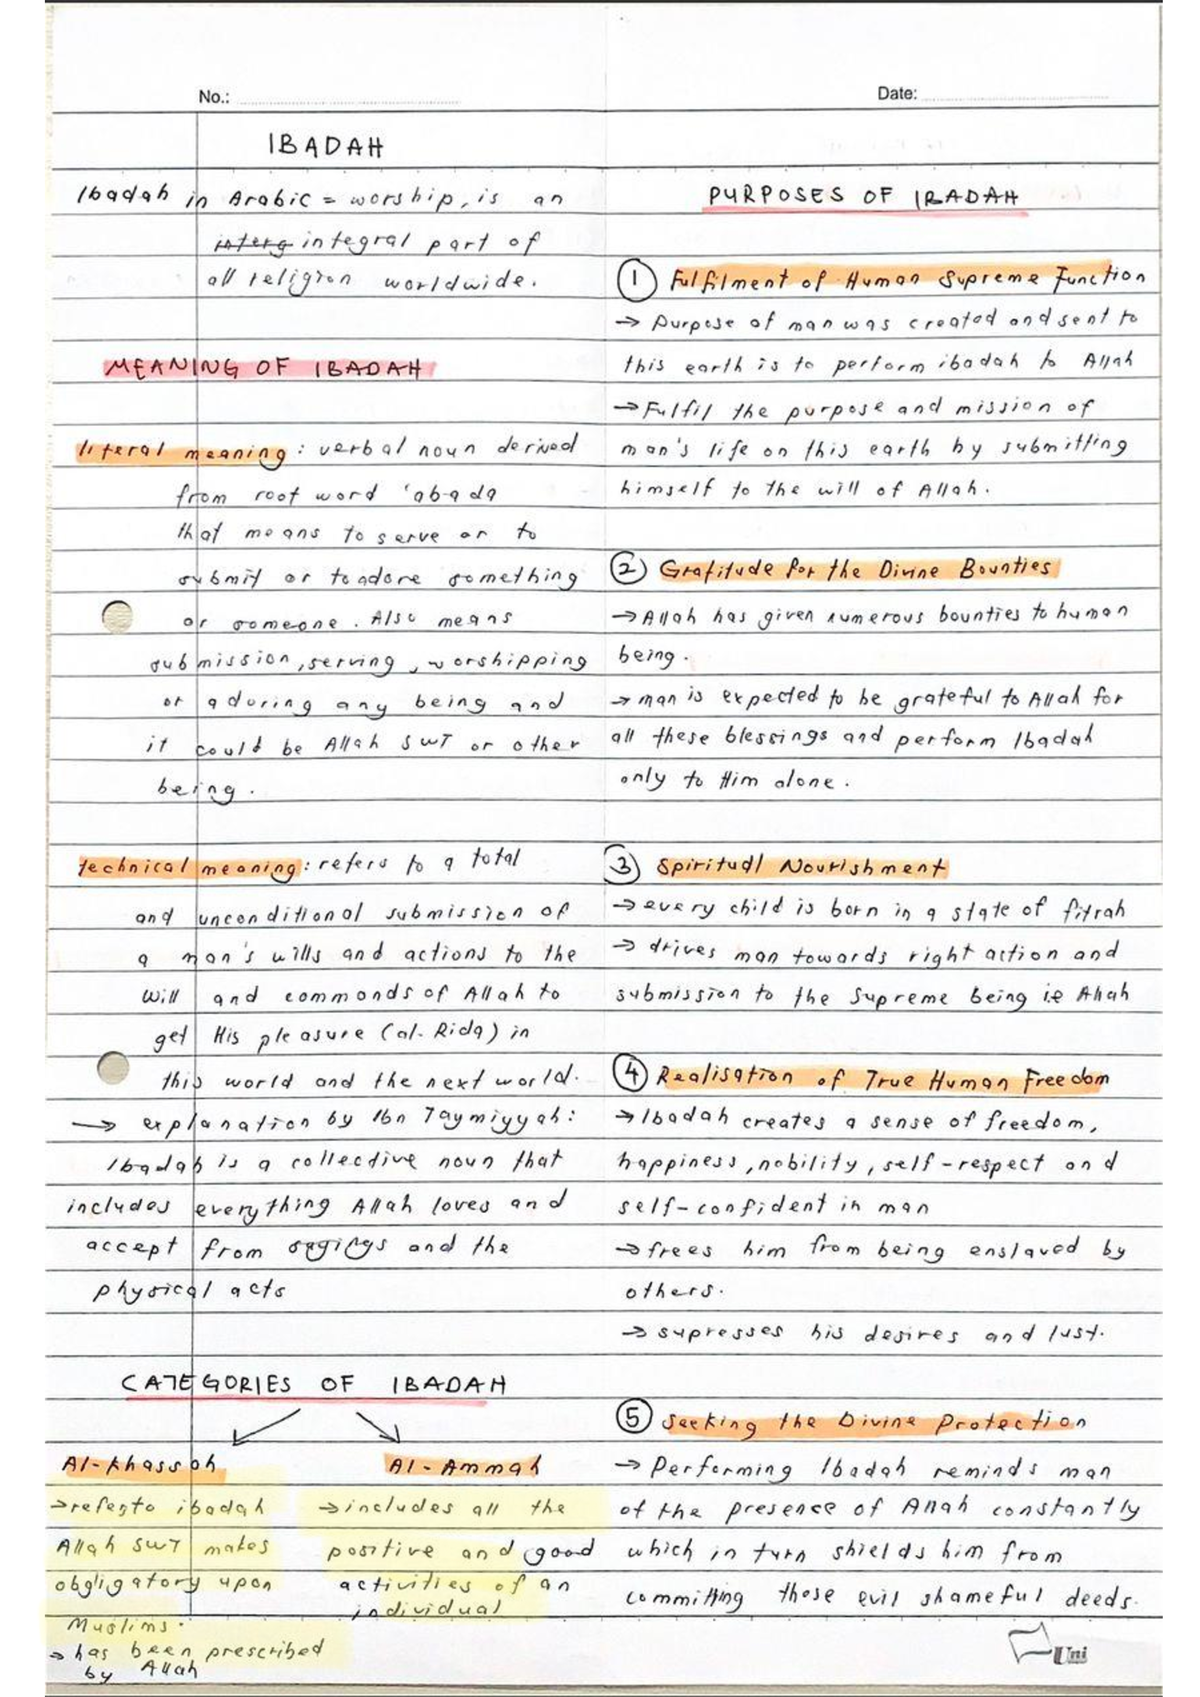 No.:
Date:
IBADAH
Ibadah in Arabic = worship, is an
interg integral part of
all religion worldwide.
MEANING OF IBADAH
literal meaning : verbal noun derived
from root word 'abada
that means to serve or to
submit or to adore something
or someone. Also means
submission, serving, worshipping
or adoring any being and
it could be Allah SWT or other
being.
technical meaning : refers to a total
and unconditional submission of
a man's wills and actions to the
will and commands of Allah to
get His pleasure (al-Rida) in
this world and the next world.
→ explanation by Ibn Taymiyyah:
Ibadah is a collective noun that
includes everything Allah loves and
accept from sayings and the
physical acts
CATEGORIES OF IBADAH
Al-khassah
→refers to ibadah
Allah SWT makes
obgligatory upon
Muslims.
→ has been prescribed
by Allah
Al-Ammah
→includes all the
positive and good
activities of an
individual
PURPOSES OF IBADAH
① Fulfilment of Human Supreme Function
→ Purpose of man was created and sent to
this earth is to perform ibadah to Allah
→Fulfil the purpose and mission of
man's life on this earth by submitting
himself to the will of Allah.
② Gratitude for the Divine Bounties
→Allah has given numerous bounties to human
being.
→ man is expected to be grateful to Allah for
all these blessings and perform Ibadah
only to Him alone.
③ Spiritual Nourishment
→every child is born in a state of fitrah
→ drives man towards right action and
submission to the Supreme being ie Allah
④ Realisation of True Human Freedom
→Ibadah creates a sense of freedom,
happiness, nobility, self-respect and
self-confident in man
→frees him from being enslaved by
others.
→ supresses his desires and lust.
⑤ Seeking the Divine Protection
→ Performing Ibadah reminds man
of the presence of Allah constantly
which in turn shields him from
committing those evil shameful deeds.
Uni